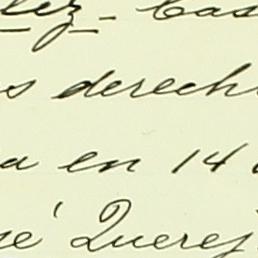 lez - Cas
s derech
a en 14 d
sé Querej